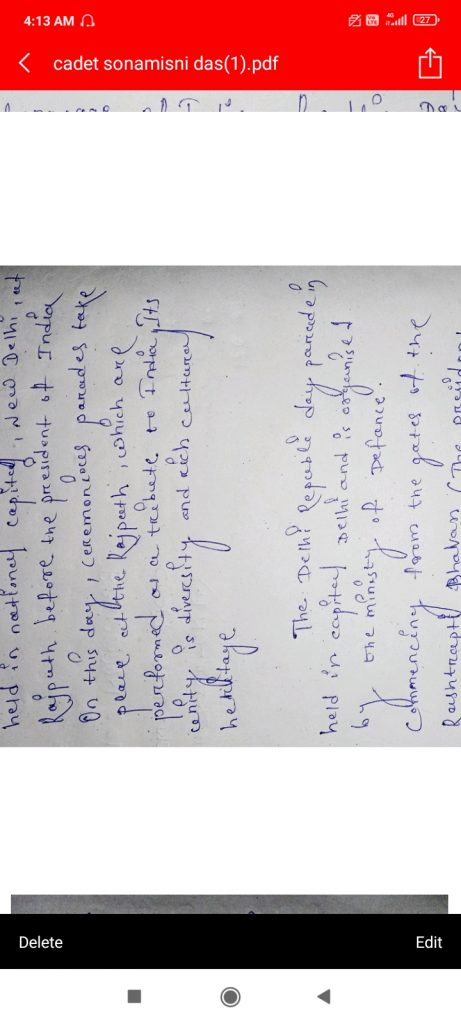 4:13 AM
4G
27
cadet sonamisni das(1).pdf
held in national capital, New Delhi, at
Rajpath before the president of India
On this day, ceremonious parades take
place at the Rajpath, which are
performed as a tribute to India, Its
unity is diversity and rich cultural
heritage
The Delhi Republic day parade in
held in capital Delhi and is organised
by the ministry of Defance.
Commencing from the gates of the
Bhavan (The president
Delete
Edit